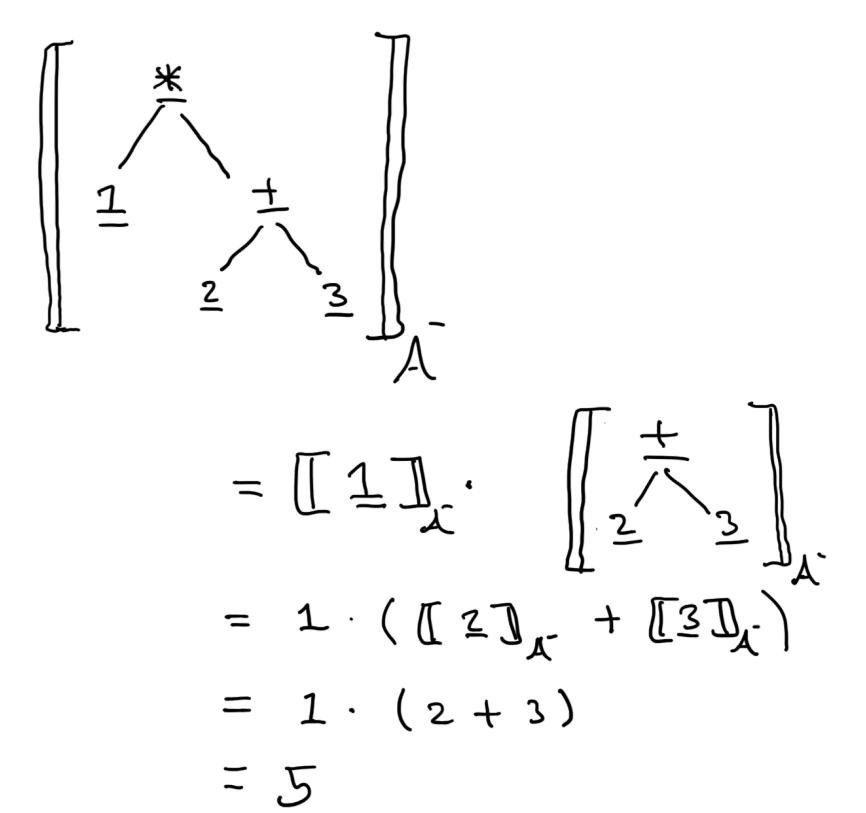 *
1 +
2 3
A⁻
= ⟦ 1 ⟧A⁻ · +
2 3
A⁻
= 1 · ( ⟦ 2 ⟧A⁻ + ⟦ 3 ⟧A⁻ )
= 1 · ( 2 + 3 )
= 5